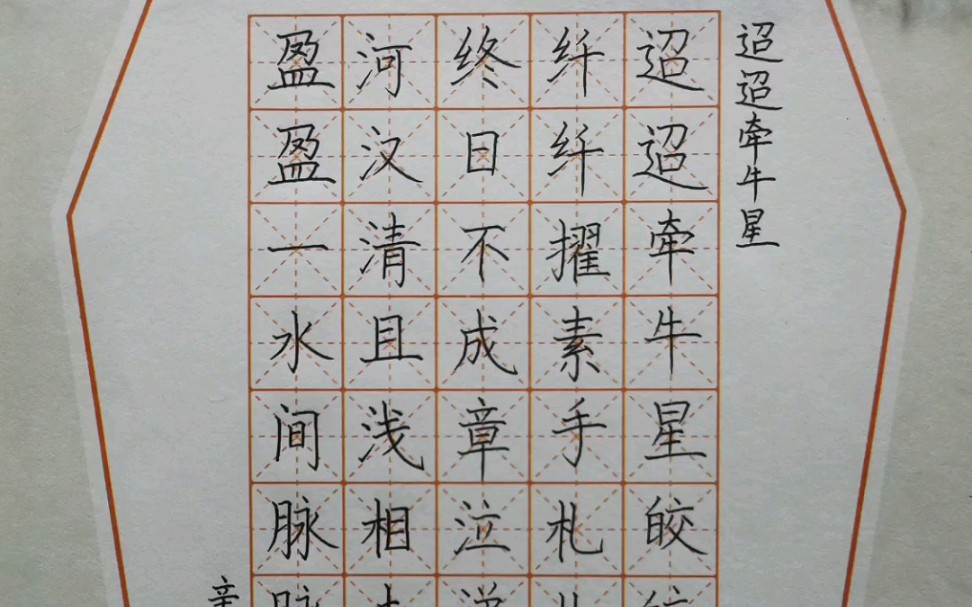 迢迢牵牛星
迢迢牵牛星皎
纤纤擢素手札
终日不成章泣
河汉清且浅相
盈盈一水间脉